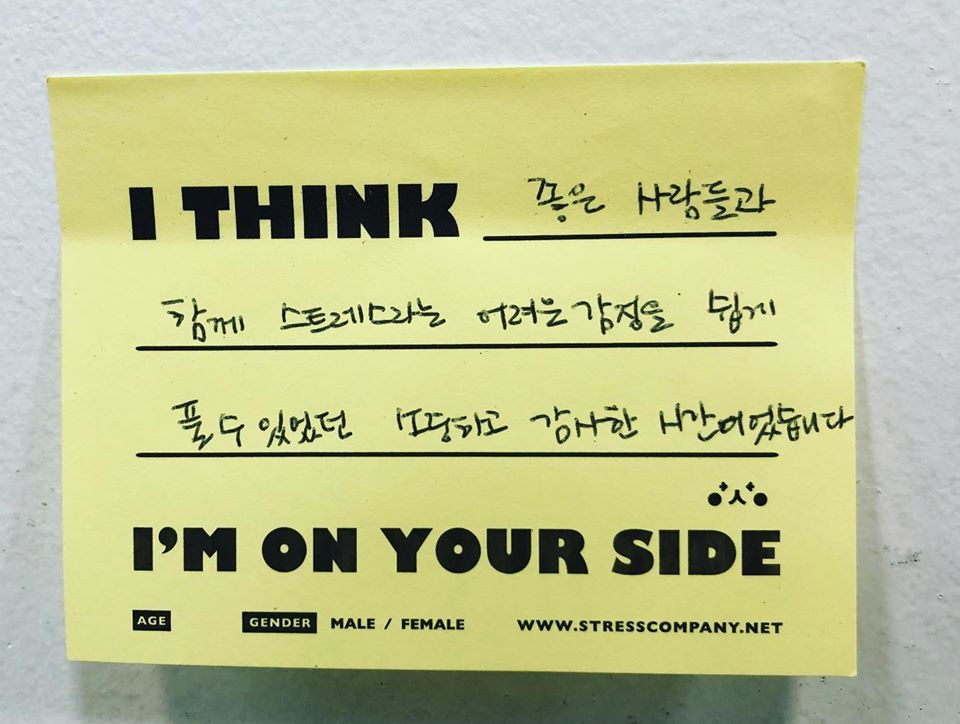 I THINK 좋은 사람들과
함께 스트레스라는 어려운 감정을 쉽게
풀 수 있었던 소중하고 감사한 시간이었습니다
I'M ON YOUR SIDE
AGE GENDER MALE / FEMALE WWW.STRESSCOMPANY.NET